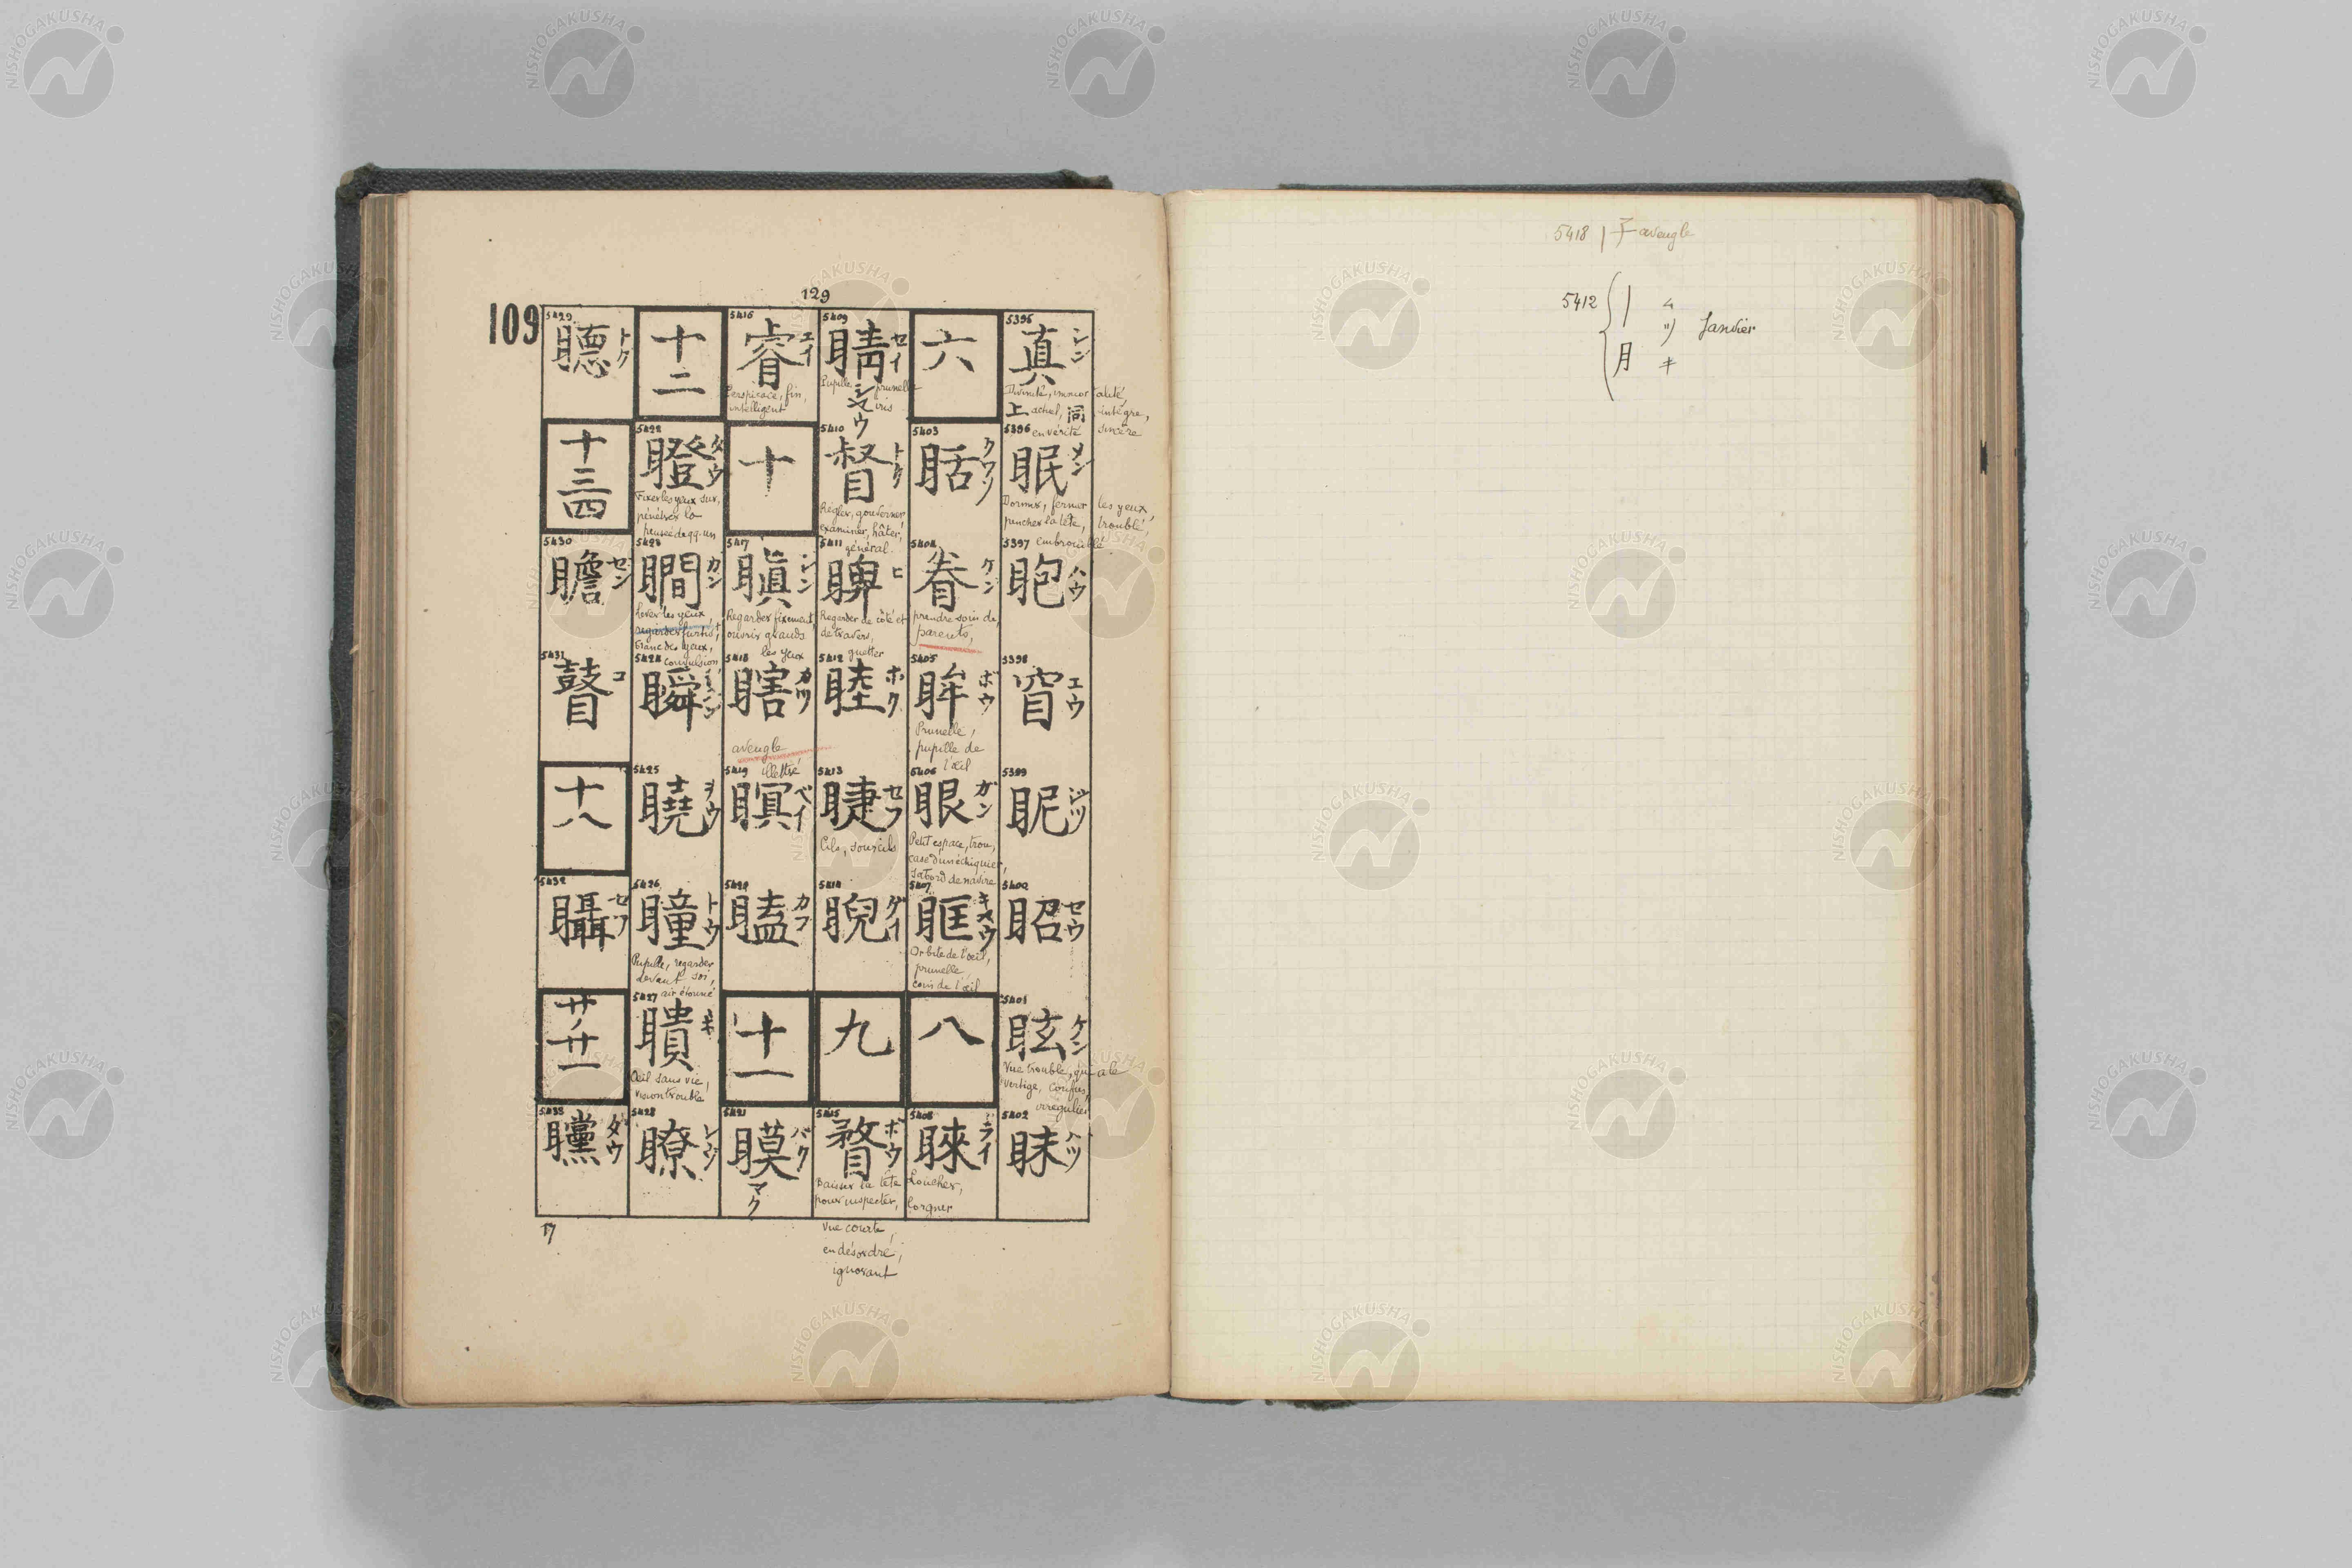 129
109
5395
真
シン
Divinité, immortalité,
上 achel, 同 intègre,
en vérité sincère
5396
眠
メン
Dormir, fermer les yeux,
pencher la tête, troublé,
embrouillé
5397
眇
ハウ
5398
窅
エウ
5399
眤
ジツ
5400
眧
セウ
5401
眩
ケン
Vue trouble, qui a le
vertige, confus,
irrégulier
5402
眜
ハツ
六
5403
眡
クワツ
5404
眷
ケン
prendre soin de,
parents,
5405
眸
ボウ
Prunelle,
pupille de
l'œil
5406
眼
ガン
Petit espace, trou,
case d'un échiquier,
sabord de navire
5407
眶
キャウ
Orbite de l'œil,
prunelle,
coin de l'œil
八
5408
睞
ライ
Loucher,
lorgner
5409
睛
セイ
シヤウ
Pupille, prunelle
iris
5410
督
トク
Régler, gouverner,
examiner, hâter,
général.
5411
睥
ヒ
Regarder de côté et
de travers,
guetter
5412
睦
ボク
5413
睫
セフ
Cils, sourcils
5414
睨
ゲイ
九
5415
瞀
ボウ
Baisser la tête
pour inspecter,
vue courte,
en désordre,
ignorant
5416
睿
エイ
Perspicace, fin,
intelligent
十
5417
瞋
シン
Regarder fixement,
ouvrir grands
les yeux
5418
瞎
カツ
aveugle
illettré
5419
瞑
ベイ
5420
瞌
カフ
十一
5421
瞙
バク
マク
十二
5422
瞪
タウ
Fixer les yeux sur,
pénétrer la
pensée de qq. un
5423
瞷
カン
Lever les yeux
regarder furtivt,
blanc des yeux,
convulsion
5424
瞬
シュン
5425
曉
ヲウ
5426
瞳
トウ
Pupille, regarder
devant soi,
air étonné
5427
瞶
キ
Œil sans vie,
vision trouble
5428
瞭
レウ
5429
聽
トク
十三四
5430
瞻
セン
5431
瞽
コ
十八
5432
囁
セフ
廿ノ廿一
5433
矘
ダウ
17
5418 | 子 aveugle
5412 | 月
ム
ツ
キ
Janvier